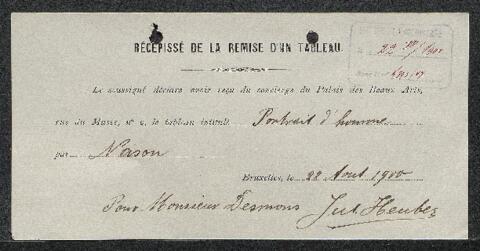 22 1900
RÉCÉPISSÉ DE LA REMISE D'UN TABLEAU.
Le soussigné déclare avoir reçu du concierge du Palais des Beaux Arts,
rue du Musée, n° 9, le tableau intitulé Portrait d'homme
par Nason
Bruxelles, le 22 Aout 1900
Pour Monsieur Desmons Jul Heuber